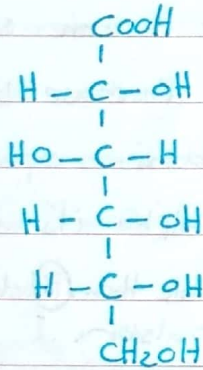 COOH
H – C – OH
HO – C – H
H – C – OH
H – C – OH
CH2OH